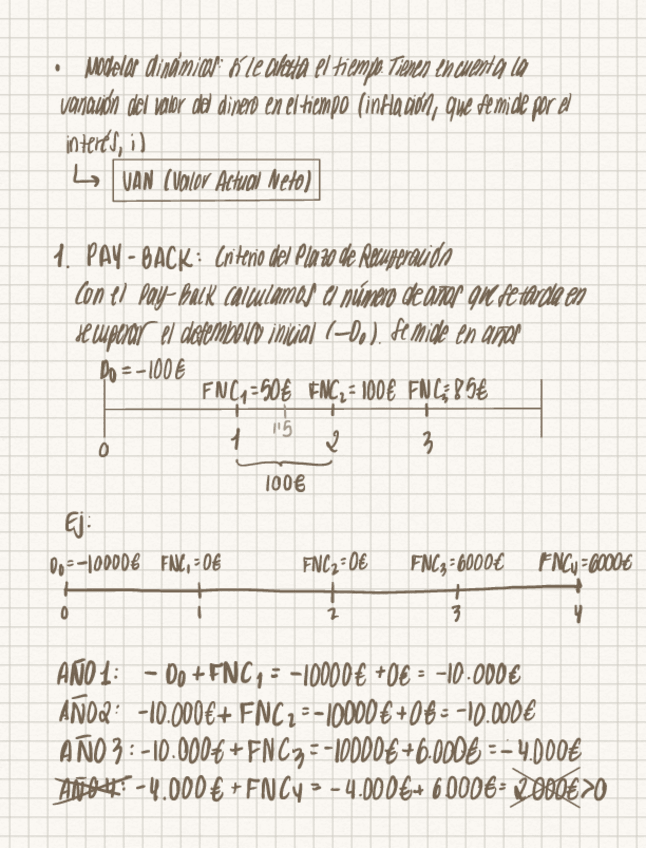 • Modelos dinámicos: Sí le afecta el tiempo. Tienen en cuenta la
variación del valor del dinero en el tiempo (inflación, que se mide por el
interés, i)
↳ VAN (Valor Actual Neto)
1. PAY-BACK: Criterio del Plazo de Recuperación
Con el Pay-Back calculamos el número de años que se tarda en
recuperar el desembolso inicial (-D₀). Se mide en años
D₀ = -100€
FNC₁=50€ FNC₂=100€ FNC₃=85€
0 1 1'5 2 3
100€
Ej:
D₀=-10000€ FNC₁=0€ FNC₂=0€ FNC₃=6000€ FNC₄=6000€
0 1 2 3 4
AÑO 1: - D₀ + FNC₁ = -10000€ +0€ = -10.000€
AÑO2: -10.000€+ FNC₂=-10000€+0€= -10.000€
AÑO 3: -10.000€ +FNC₃=-10000€+6.000€ =-4.000€
AÑO 4: -4.000€ +FNC₄ = -4.000€+ 6000€= 2000€>0